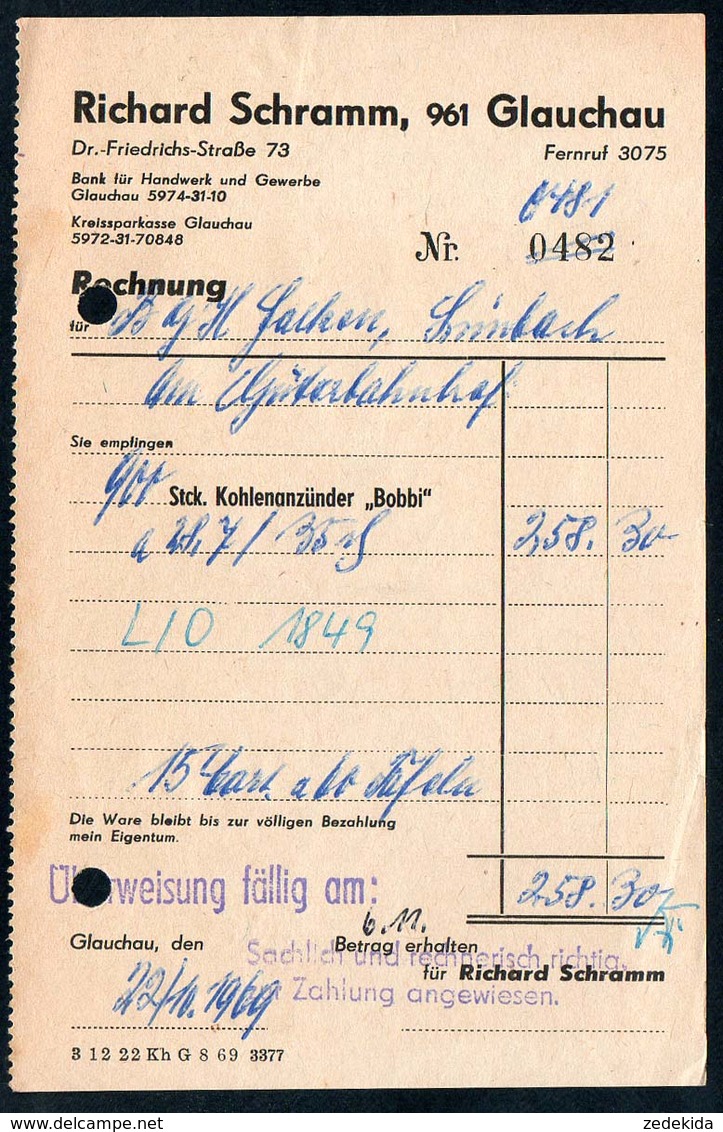 Richard Schramm, 961 Glauchau
Dr.-Friedrichs-Straße 73 Fernruf 3075
Bank für Handwerk und Gewerbe
Glauchau 5974-31-10
Kreissparkasse Glauchau
5972-31-70848
0481
Nr. 0482
Rechnung
für BGH Falken,
Am Güterbahnhof
Sie empfingen
900 Stck. Kohlenanzünder „Bobbi“
a 28,7/ 258. 30
L10 1849
15 Cart. a 60 Tafeln
Die Ware bleibt bis zur völligen Bezahlung
mein Eigentum.
Überweisung fällig am: 258. 30
6.11.
Glauchau, den Betrag erhalten
Sachlich und rechnerisch richtig.
für Richard Schramm
22/10. 1969
Zahlung angewiesen.
3 12 22 Kh G 8 69 3377
zedekida